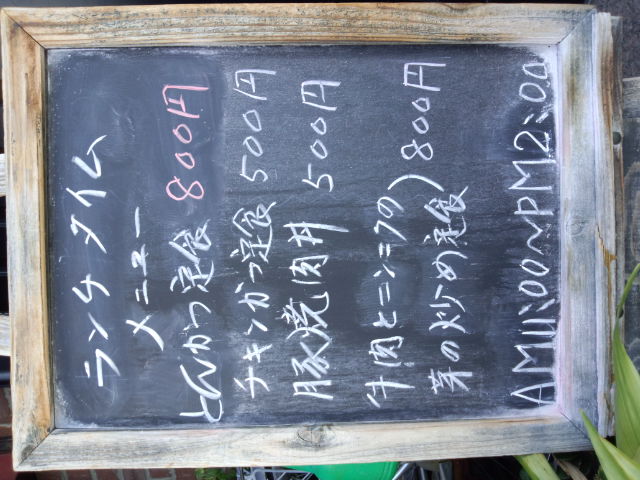 ランチタイム
メニュー
とんかつ定食 800円
チキンかつ定食 500円
豚焼肉丼 500円
牛肉とニンニクの
芽の炒め定食) 800円
AM11:00~PM2:00